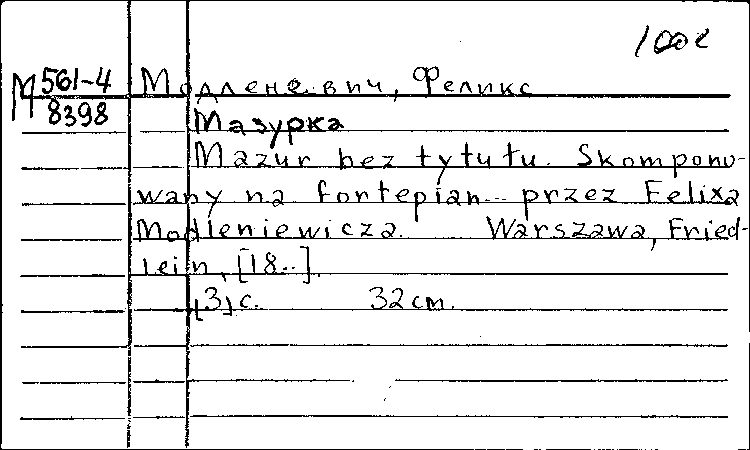 1002
М 561-4
8398
Модленевич, Феликс
Мазурка
Mazur bez tytułu. Skompono-
wany na fortepian przez Felixa
Modleniewicza. Warszawa, Fried-
lein, [18..].
[3] с. 32 cm.